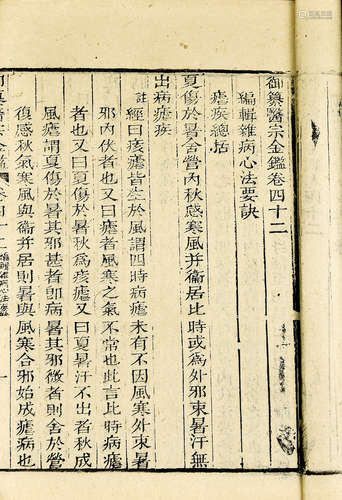 御纂醫宗金鑑卷四十二
編輯雜病心法要訣
瘧疾總括
夏傷於暑舍營內秋感寒風并衞居比時或為外邪束暑汗無
出病瘧疾
註經曰痎瘧皆生於風謂四時病瘧未有不因風寒外束暑
邪內伏者也又曰瘧者風寒之氣不常也此言比時病瘧
者也又曰夏傷於暑秋為痎瘧又曰夏暑汗不出者秋成
風瘧謂夏傷於暑其邪甚者即病暑其邪微者則舍於營
復感秋氣寒風與衞并居則暑與風寒合邪始成瘧病也
卷四十二
一